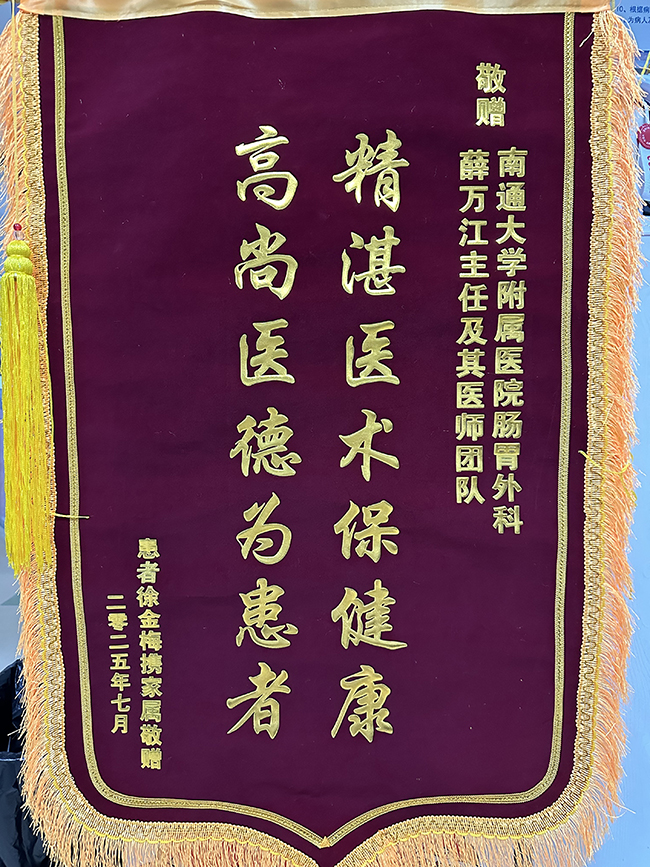 敬赠
南通大学附属医院肠胃外科
薛万江主任及其医师团队
精湛医术保健康
高尚医德为患者
患者徐金梅携家属敬赠
二零二五年七月